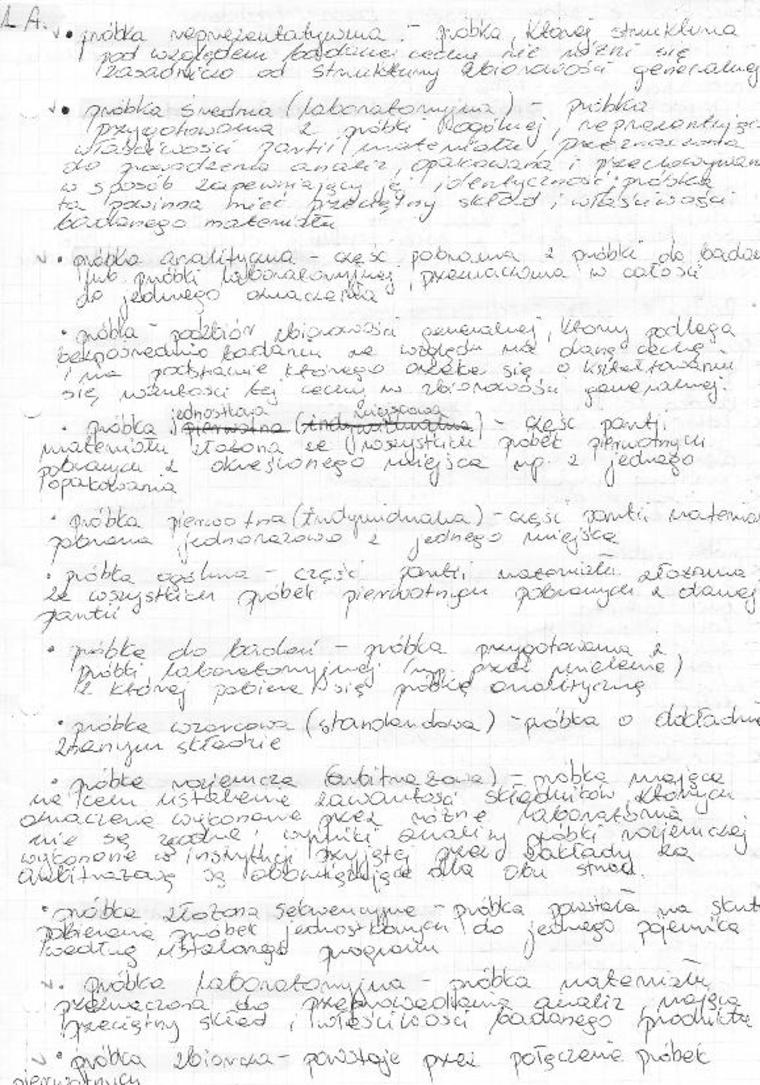 1 A.
• próbka reprezentatywna - próbka, której struktura
pod względem badanej cechy nie różni się
zasadniczo od struktury zbiorowości generalnej
• próbka średnia (laboratoryjna) - próbka
przygotowana z próbki ogólnej, reprezentując
właściwości partii materiału, przeznaczona
do prowadzenia analiz, opakowana i przechowywan
w sposób zapewniający jej identyczność. próbka
ta powinna mieć przeciętny skład i właściwości
badanego materiału
• próbka analityczna - część pobrana z próbki do badań
lub próbki laboratoryjnej, przeznaczona w całości
do jednego oznaczenia
• próbka - podzbiór zbiorowości generalnej, który podlega
bezpośrednio badaniu ze względu na daną cechę
i na podstawie którego orzeka się o kształtowaniu
się wartości tej cechy w zbiorowości generalnej.
jednostkowa miejscowa
• próbka pierwotna (indywidualna) - część partii
materiału złożona ze wszystkich próbek pierwotnych
pobranych z określonego miejsca np. z jednego
opakowania
• próbka pierwotna (indywidualna) - część partii materia
pobrana jednorazowo z jednego miejsca
• próbka ogólna - części partii materiału złożona
ze wszystkich próbek pierwotnych pobranych z danej
partii
• próbka do badań - próbka przygotowana z
próbki laboratoryjnej (np. przez mielenie)
z której pobiera się próbkę analityczną
• próbka wzorcowa (standardowa) - próbka o dokładni
znanym składzie
• próbka rozjemcza (arbitrażowa) - próbka mająca
na celu ustalenie zawartość składników których
oznaczenia wykonane przez różne laboratoria
nie są zgodne; wyniki analizy próbki rozjemczej
wykonane w instytucji przyjętej przez zakłady za
arbitrażową są obowiązujące dla obu stron.
• próbka złożona sekwencyjne - próbka powstała na skut
pobierania próbek jednostkowych do jednego pojemnika
według ustalonego programu
• próbka laboratoryjna - próbka materiału
przeznaczona do przeprowadzania analiz, mająca
przeciętny skład i właściwości badanego produktu
• próbka zbiorcza - powstaje przez połączenie próbek
pierwotnych